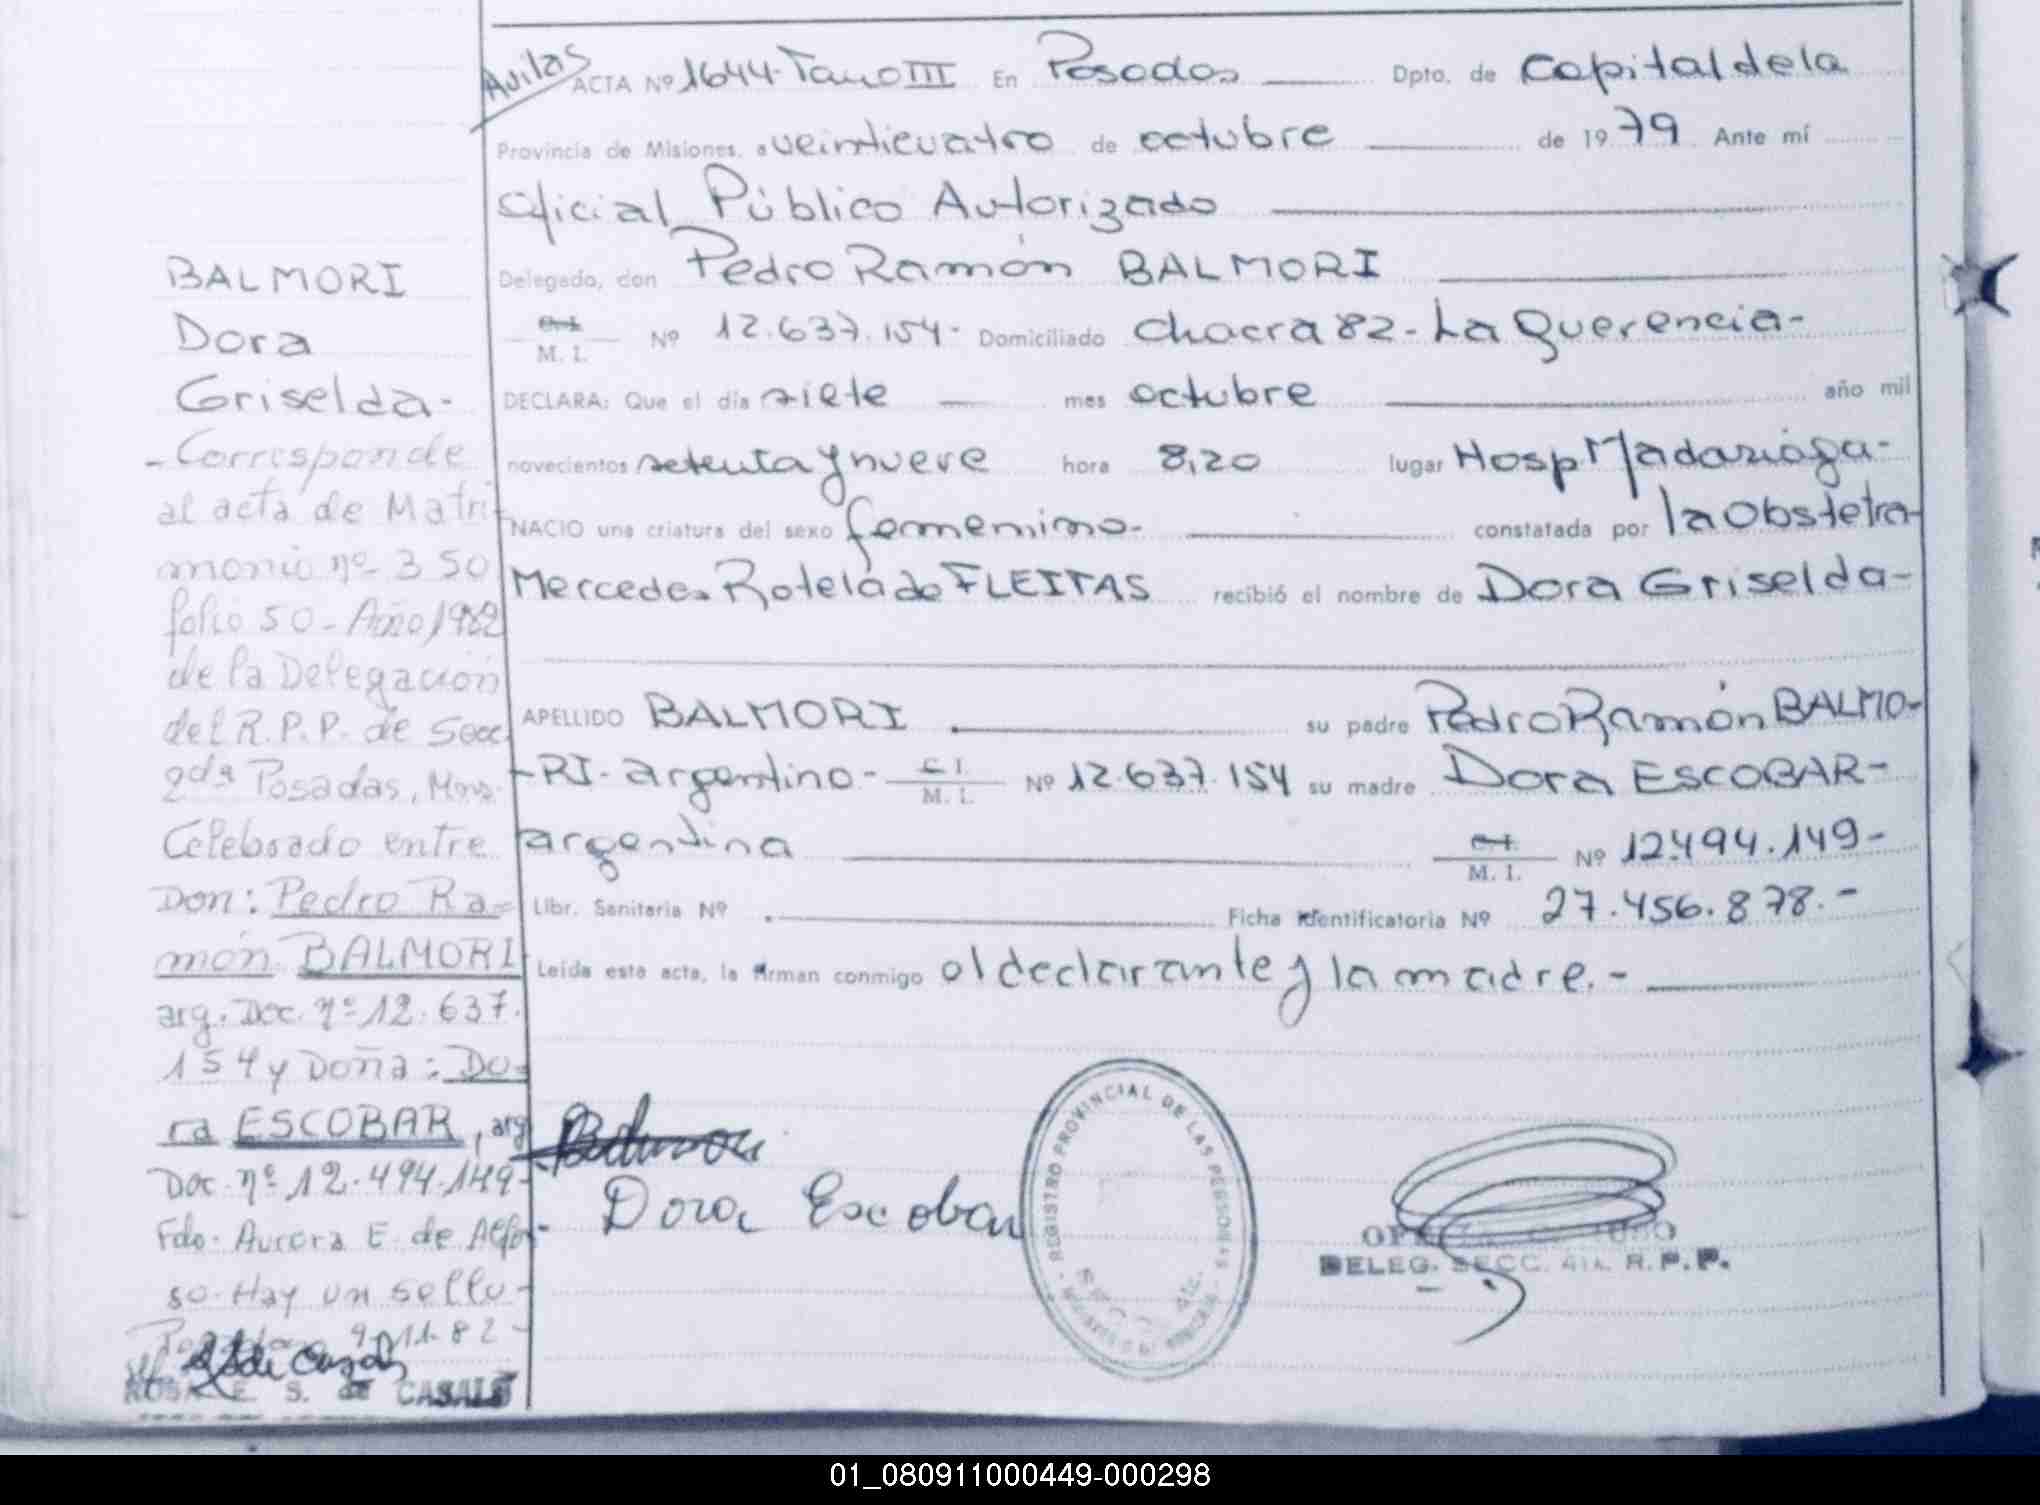 Avilas
ACTA Nº 1644-Tomo III En Posadas Dpto. de Capital de la
Provincia de Misiones, a veinticuatro de octubre de 1979 Ante mí
Oficial Público Autorizado
Delegado, don Pedro Ramón BALMORI
C.I. M. I. Nº 12.637.154- Domiciliado Chacra 82-La Querencia-
DECLARA: Que el día siete mes octubre año mil
novecientos setenta y nueve hora 8,20 lugar Hosp Madariaga-
NACIO una criatura del sexo femenino- constatada por la Obstetra-
Mercedes Rotela de FLEITAS recibió el nombre de Dora Griselda-
APELLIDO BALMORI su padre Pedro Ramón BALMO-
-RI-argentino- C.I. M. I. Nº 12.637.154 su madre Dora ESCOBAR-
argentina C.I. M. I. Nº 12.494.149-
Libr. Sanitaria Nº Ficha identificatoria Nº 27.456.878.-
Leída esta acta, la firman conmigo el declarante y la madre.-
Balmori
Dora Escobar
REGISTRO PROVINCIAL DE LAS PERSONAS
DELEG. SECC. 4ta. R.P.P.
BALMORI
Dora
Griselda-
-Corresponde
al acta de Matri-
monio nº 350
folio 50-Año 1982
de la Delegación
del R.P.P. de Secc.
2da Posadas, Mnes.
Celebrado entre
Don: Pedro Ra=
món BALMORI
arg. Doc. nº 12.637.
154 y Doña: Do=
ra ESCOBAR, arg
Doc. nº 12.494.149-
Fdo. Aurora E. de Alfon-
so. Hay un sello-
Posadas 9-11-82-
ROSA E. S. de CASALS
01_080911000449-000298